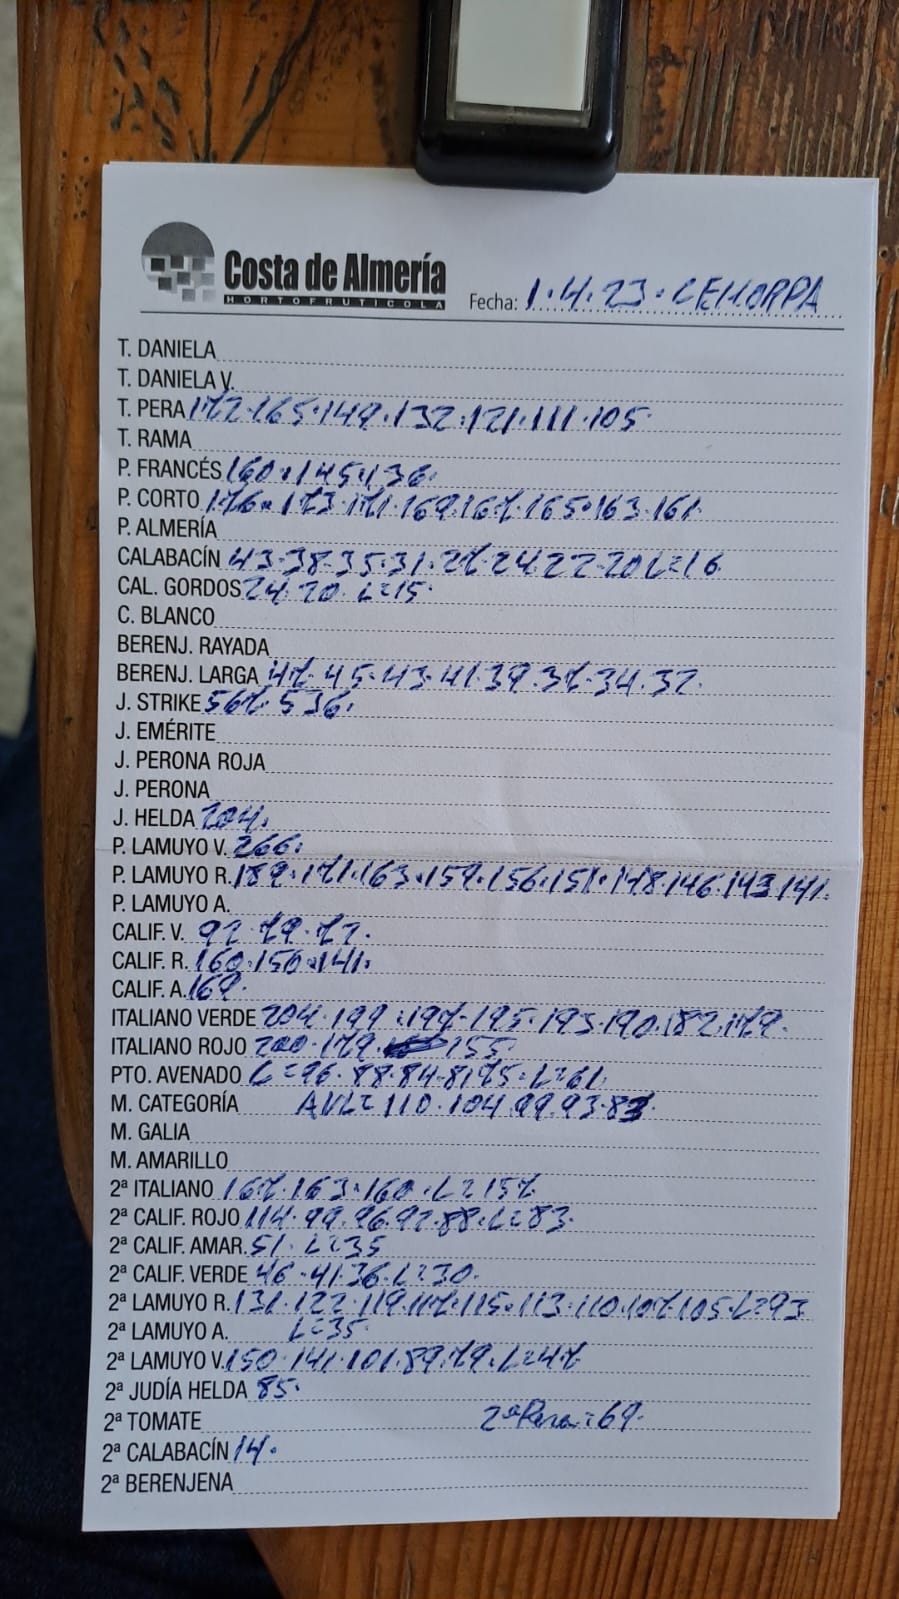 Costa de Almería
HORTOFRUTICOLA
Fecha: 1.4.23. CEHORPA
T. DANIELA
T. DANIELA V.
T. PERA 172.165.149.132.121.111.105.
T. RAMA
P. FRANCÉS 160.145.136.
P. CORTO 176.173.171.169.167.165.163.161.
P. ALMERÍA
CALABACÍN 43.38.35.31.27.24.22.20 L=16
CAL. GORDOS 24.20. L=15.
C. BLANCO
BERENJ. RAYADA
BERENJ. LARGA 47.45.43.41.39.37.34.32.
J. STRIKE 567.536.
J. EMÉRITE
J. PERONA ROJA
J. PERONA
J. HELDA 204.
P. LAMUYO V. 266.
P. LAMUYO R. 189.171.163.159.156.151.148.146.143.141.
P. LAMUYO A.
CALIF. V. 92.79.72.
CALIF. R. 160.150.141.
CALIF. A. 169.
ITALIANO VERDE 204.199.197.195.193.190.182.179.
ITALIANO ROJO 200.179. 155
PTO. AVENADO L=96.88.84.81.75.L=61.
M. CATEGORÍA AVL=110.104.99.93.83.
M. GALIA
M. AMARILLO
2ª ITALIANO 167.163.160.L=157
2ª CALIF. ROJO 114.99.96.92.88.L=83.
2ª CALIF. AMAR. 51. L=35
2ª CALIF. VERDE 46.41.36.L=30.
2ª LAMUYO R. 131.122.119.117.115.113.110.107.105.L=93
2ª LAMUYO A. L=35
2ª LAMUYO V. 150.141.101.89.79.L=47
2ª JUDÍA HELDA 85.
2ª TOMATE 2ª Pera=69.
2ª CALABACÍN 14.
2ª BERENJENA